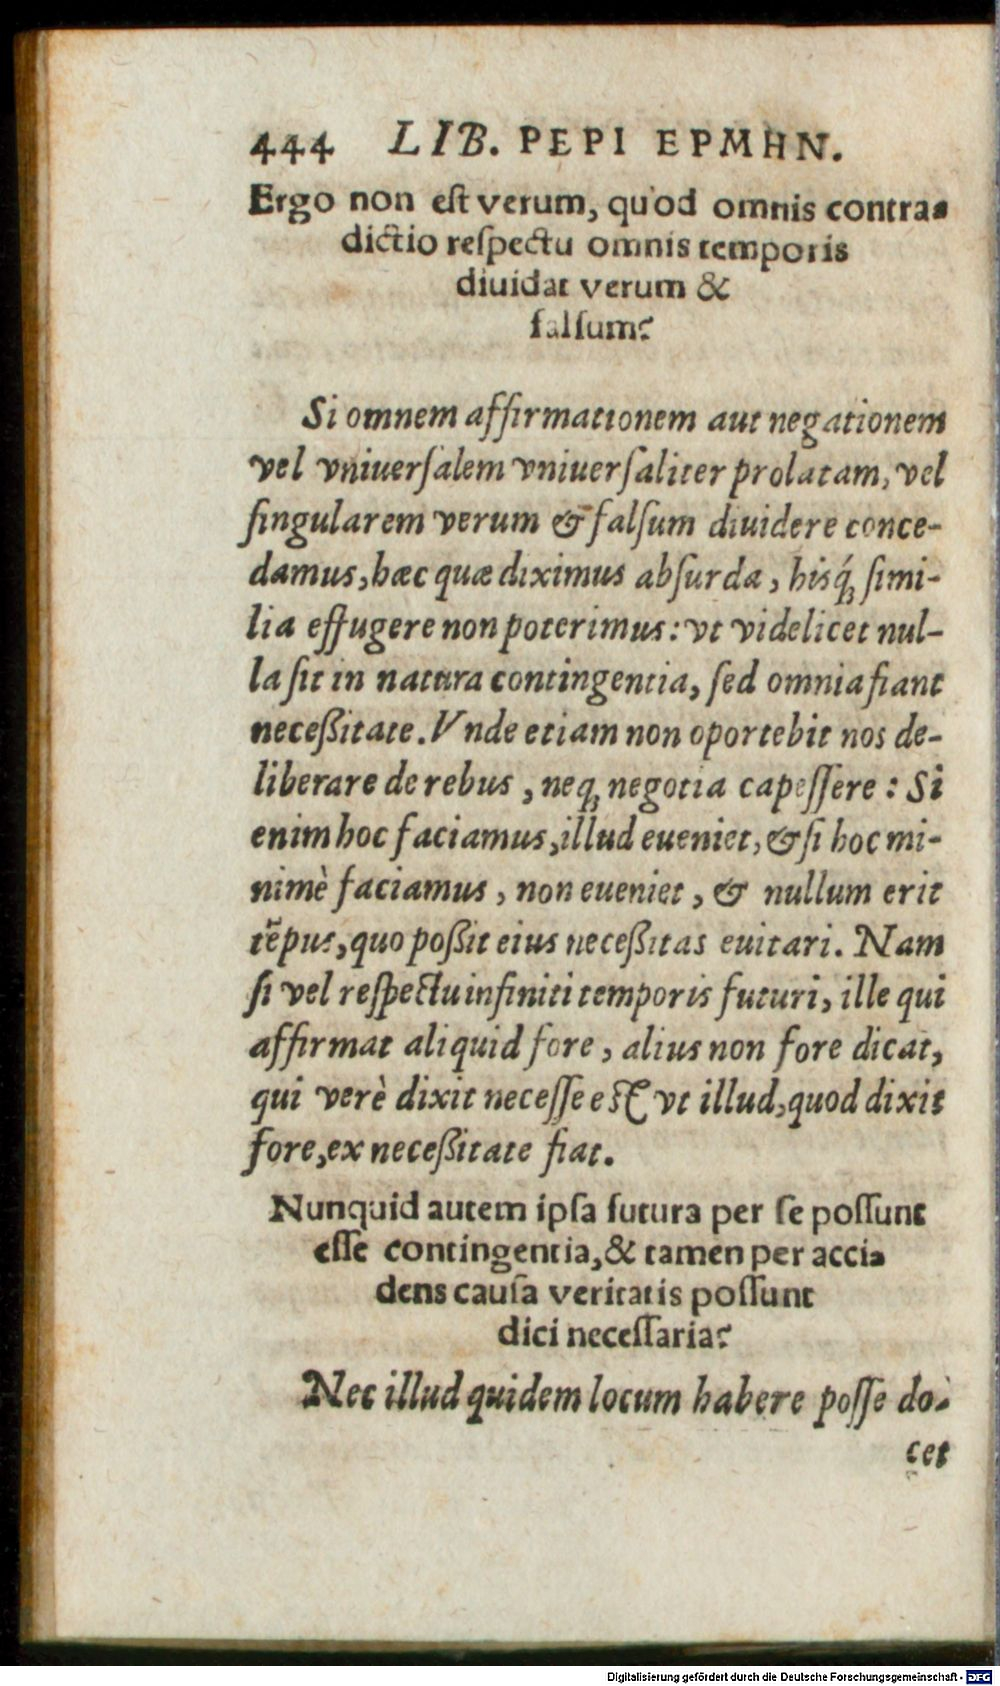 444 LIB. ΠΕΡΙ ΕΡΜΗΝ.
Ergo non est verum, quòd omnis contra-
dictio respectu omnis temporis
diuidat verum &
falsum?
Si omnem affirmationem aut negationem
vel vniuersalem vniuersaliter prolatam, vel
singularem verum & falsum diuidere conce-
damus, hæc quæ diximus absurda, hisq́; simi-
lia effugere non poterimus: vt videlicet nul-
la sit in natura contingentia, sed omnia fiant
neceßitate. Vnde etiam non oportebit nos de-
liberare de rebus, neq; negotia capessere: Si
enim hoc faciamus, illud eueniet, & si hoc mi-
nimè faciamus, non eueniet, & nullum erit
tẽpus, quo poßit eius neceßitas euitari. Nam
si vel respectu infiniti temporis futuri, ille qui
affirmat aliquid fore, alius non fore dicat,
qui verè dixit necesse est vt illud, quod dixit
fore, ex neceßitate fiat.
Nunquid autem ipsa futura per se possunt
esse contingentia, & tamen per acci-
dens causa veritatis possunt
dici necessaria?
Nec illud quidem locum habere posse do-
cet
Digitalisierung gefördert durch die Deutsche Forschungsgemeinschaft - DFG